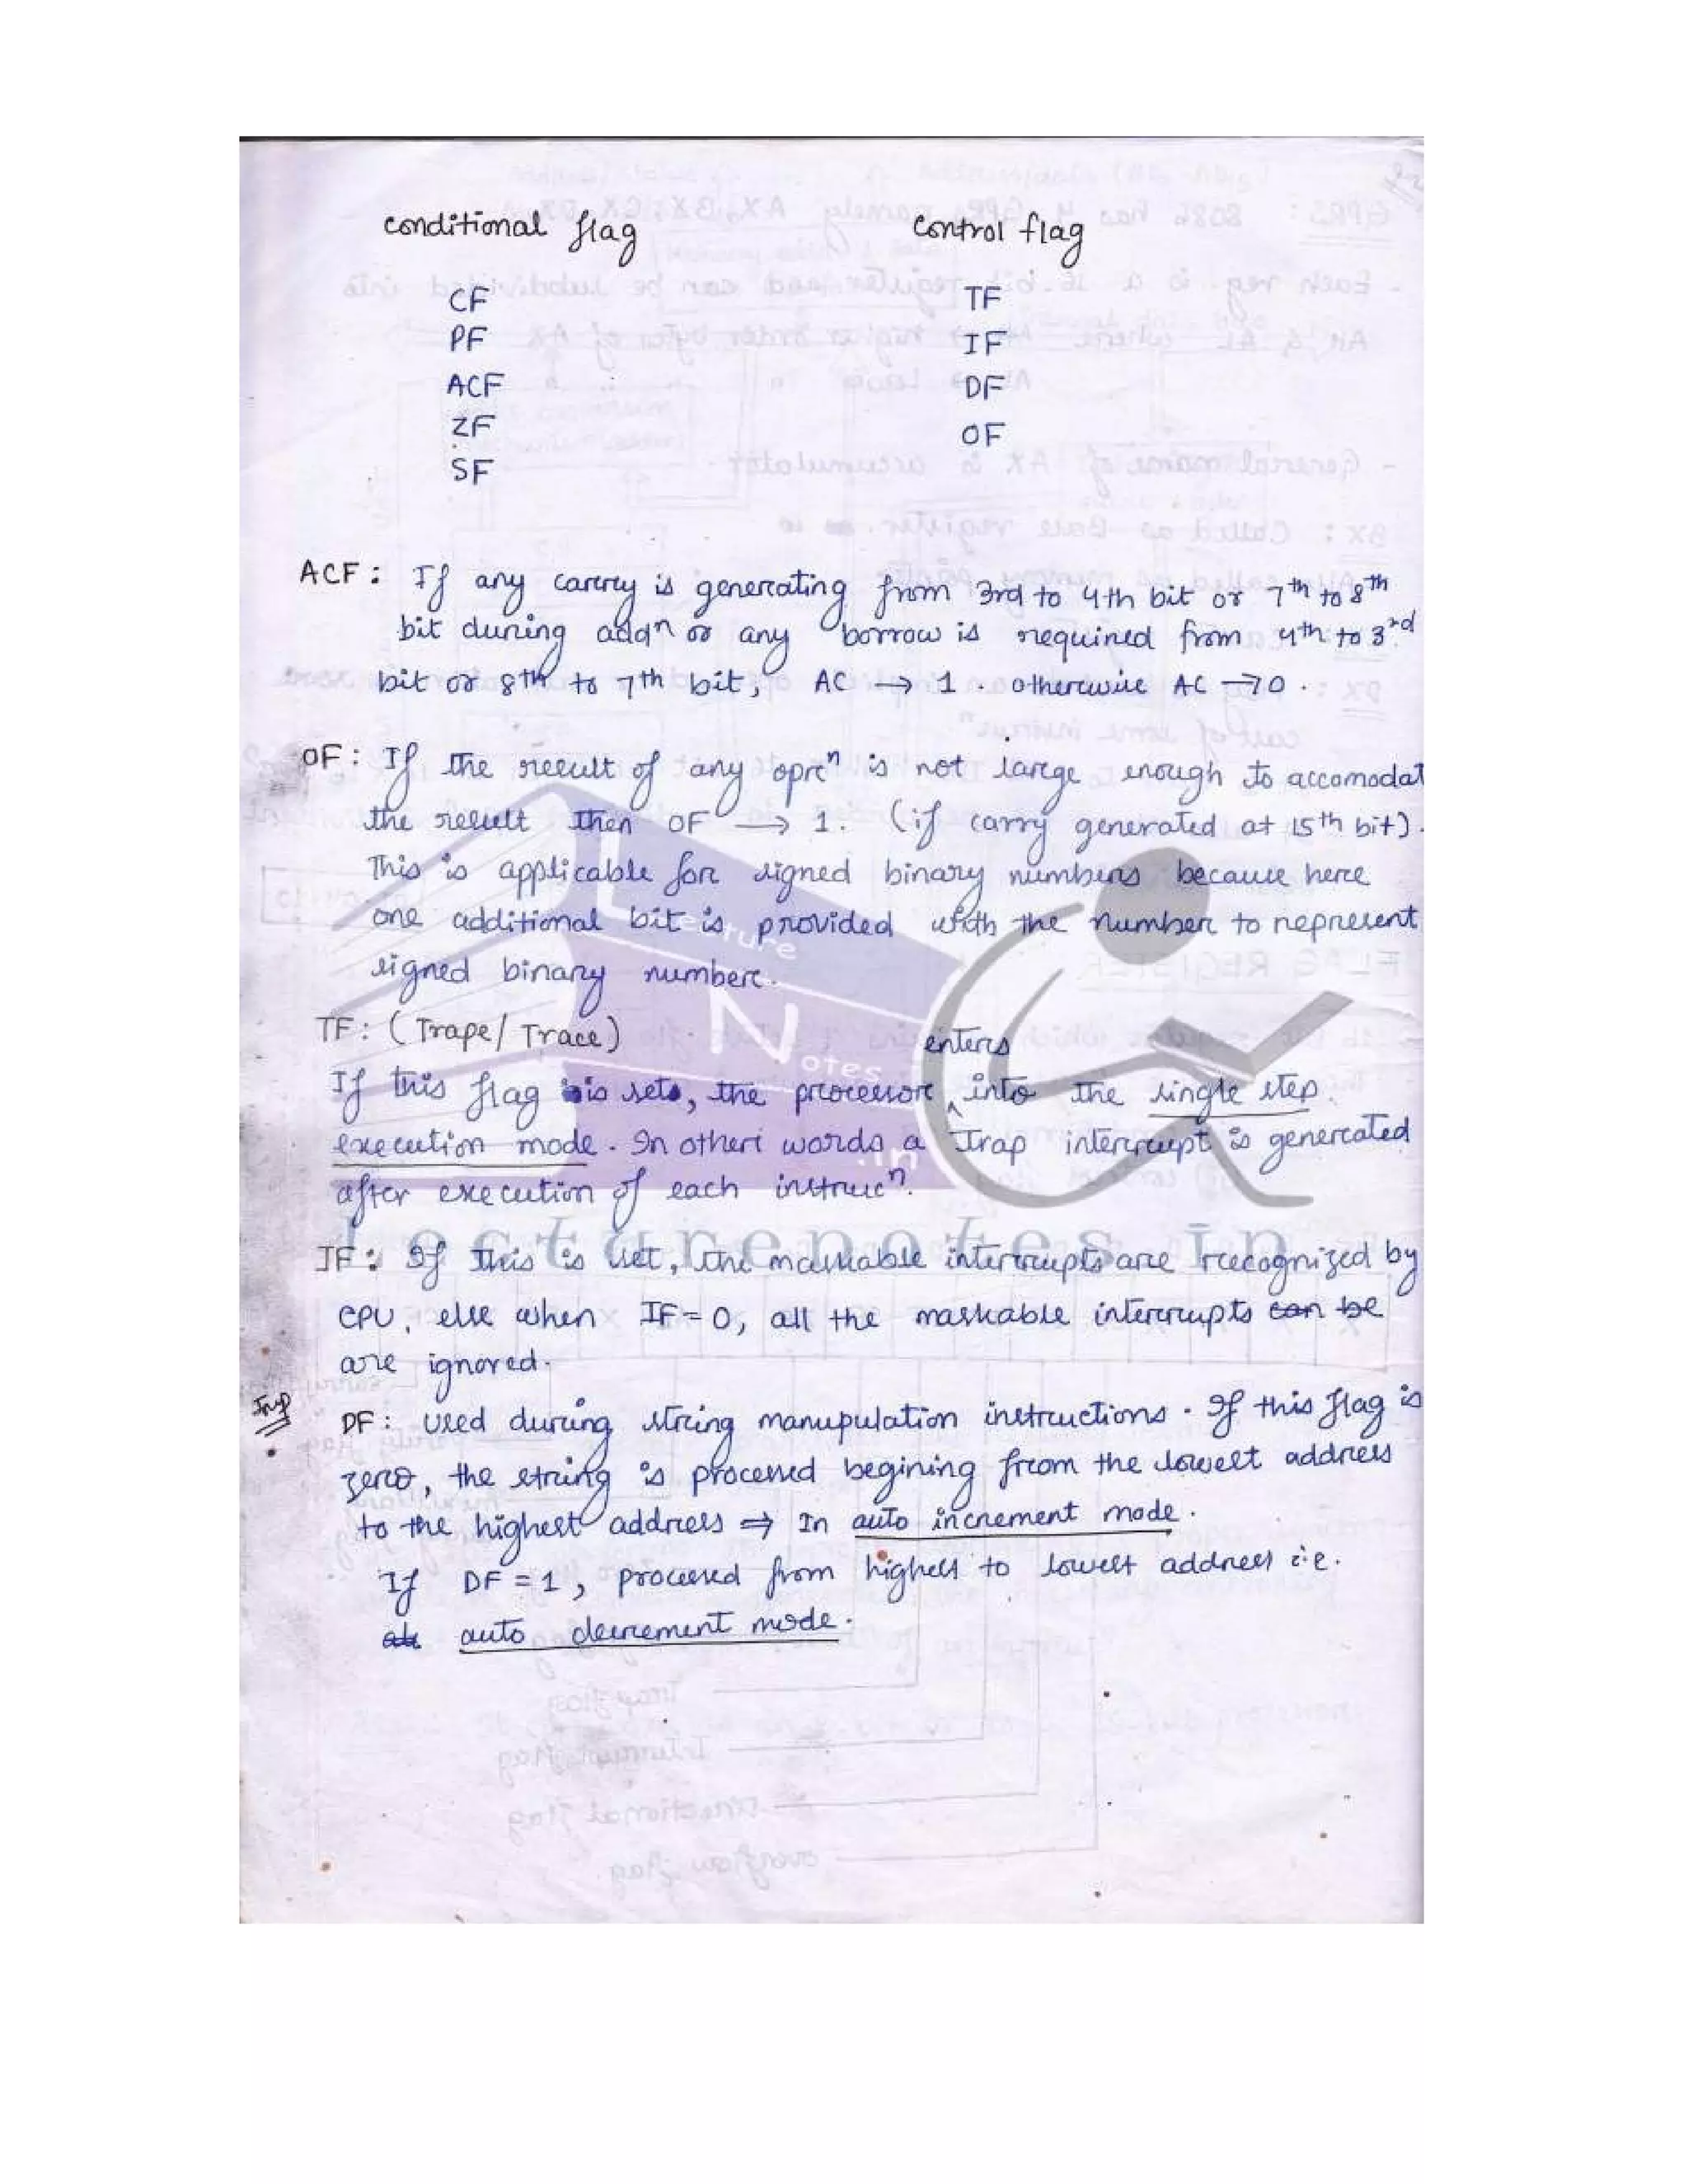 conditional flag control flag
CF TF
PF IF
ACF DF
ZF OF
SF
ACF : If any carry is generating from 3rd to 4th bit or 7th to 8th
bit during addn or any borrow is required from 4th to 3rd
bit or 8th to 7th bit, AC → 1 . otherwise AC → 0 .
OF : If the result of any oprn is not large enough to accomodat
the result then OF → 1. (if carry generated at 15th bit).
This is applicable for signed binary numbers because here
one additional bit is provided with the number to represent
signed binary number.
TF : ( Trape / Trace )
If this flag is set, the processor enters into the single step
execution mode . In other words a Trap interrupt is generated
after execution of each instrucn.
IF : If this is set, the maskable interrupts are recognized by
CPU, else when IF = 0, all the maskable interrupts can be
are ignored.
Imp
DF : used during string manupulation instructions . If this flag is
zero, the string is processed begining from the lowest address
to the highest address ⇒ In auto increment mode .
If DF = 1 , processed from highest to lowest address i.e.
auto decrement mode .
Lecture
Notes
.in
lecturenotes.in